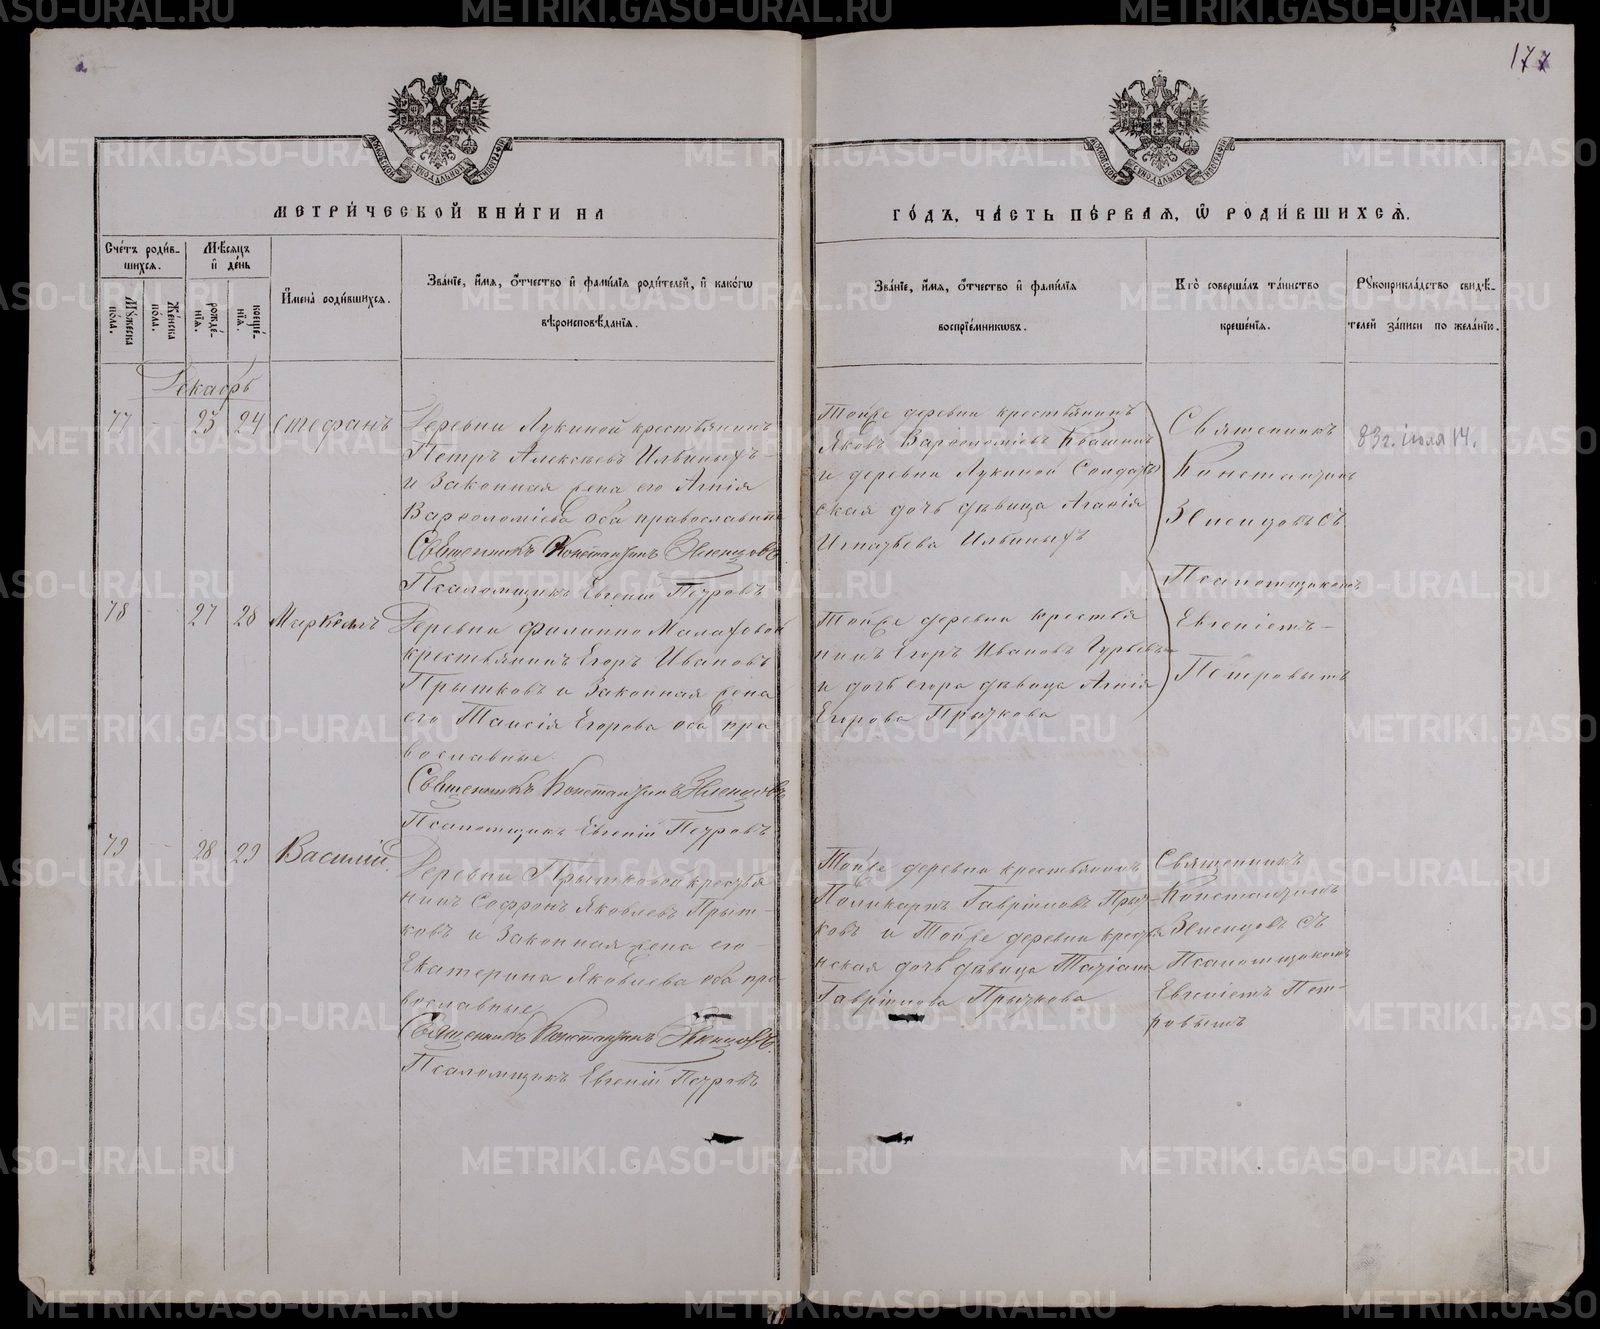 177
МЕТРИЧЕСКОЙ КНИГИ НА
ГОДЪ, ЧАСТЬ ПЕРВАЯ, Ѽ РОДИВШИХСѦ.
Счетъ родив-
шихся.
Мѣсяцъ
и день
Мужеска
пола.
Женска
пола.
рожде-
нія.
креще-
нія.
Имена родившихся.
Званіе, имя, отчество и фамилія родителей, и какогѡ
вѣроисповѣданія.
Званіе, имя, отчество и фамилія
воспріемникѡвъ.
Кто совершалъ таинство
крещенія.
Рукоприкладство свидѣ-
телей записи по желанію.
Декабрь
77 23 24 Стефанъ
Деревни Лукиной крестьянинъ
Петръ Алексѣевъ Ильиныхъ
и законная жена его Агнія
Варѳоломіева оба православные
Священникъ Константинъ Зеленцовъ
Псаломщикъ Евгеній Петровъ
Тойже деревни крестьянинъ
Яковъ Варѳоломіевъ
и деревни Лукиной Солдат
ская дочь дѣвица Агапія
Игнатьева Ильиныхъ
Священникъ
Константинъ
Зеленцовъ съ
Псаломщикомъ
Евгеніемъ
Петровымъ
83 г. іюля 14.
78 27 28 Маркеллъ
Деревни
крестьянинъ Егоръ Ивановъ
Прытковъ и законная жена
его Таисія Егорова оба пра
вославные
Священникъ Константинъ Зеленцовъ
Псаломщикъ Евгеній Петровъ
Тойже деревни крестья
нинъ Егоръ Ивановъ Гурьевъ
и дочь Егора дѣвица Агнія
Егорова Прыткова
79 28 29 Василій
Деревни Прытковой крестья
нинъ Софронъ Яковлевъ Прыт-
ковъ и законная жена его
Екатерина Яковлева оба пра
вославные
Священникъ Константинъ Зеленцовъ
Псаломщикъ Евгеній Петровъ
Тойже деревни крестьянинъ
Поликарпъ Гавріиловъ Прыт-
ковъ и Тойже деревни крестья
нская дочь дѣвица Татіана
Гавріилова Прыткова
Священникъ
Константинъ
Зеленцовъ съ
Псаломщикомъ
Евгеніемъ Пет-
ровымъ
METRIKI.GASO-URAL.RU